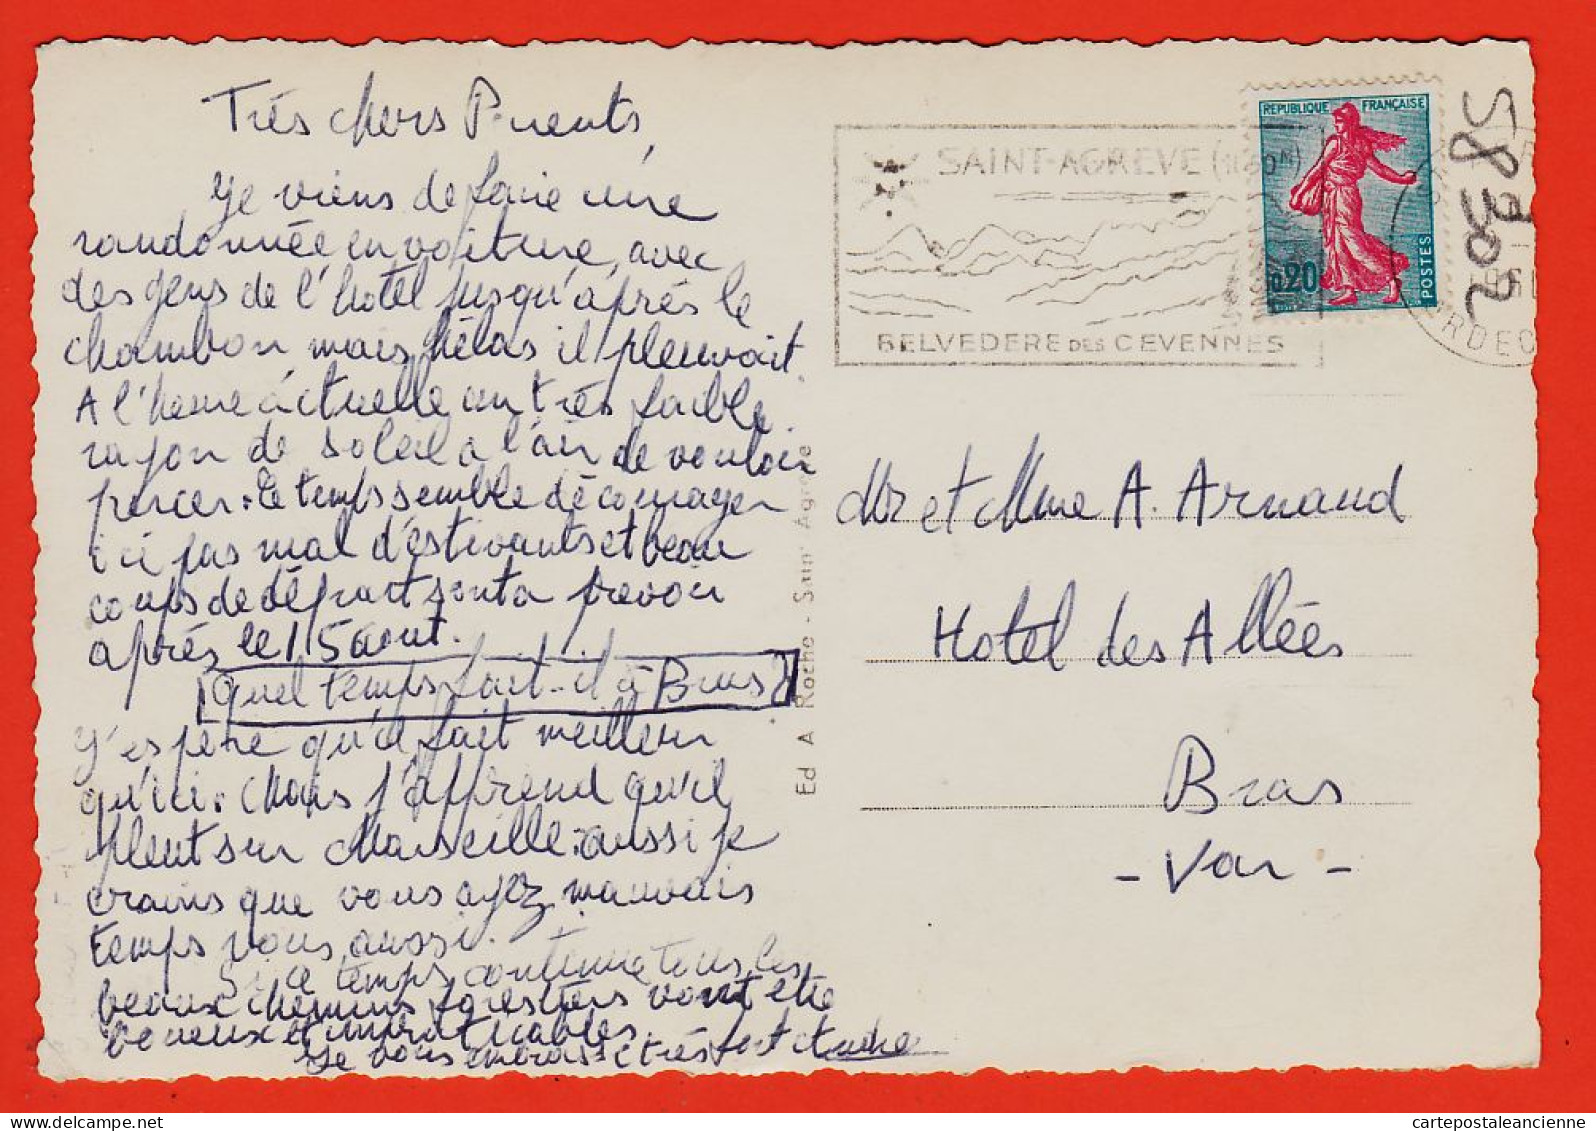 Très chers Parents,
Je viens de faire une
randonnée en voiture, avec
des gens de l'hotel jusqu'après le
chambon, mais hélas il pleuvait.
A l'heure actuelle un très faible
rayon de soleil a l'air de vouloir
percer. Le temps semble décourager
ici pas mal d'estivants et beau
coups de départs sont a prevoir
après le 15 aout.
Quel temps fait-il à Bras?
J'espère qu'il fait meilleur
qu'ici. Mais j'apprend qu'il
pleut sur Marseille: aussi je
crains que vous ayez mauvais
temps vous aussi.
Si ce temps continue tous les
beaux chemins forestiers vont etre
boueux et impraticables.
Je vous embrasse très fort
SAINT-AGREVE (1050M)
BELVEDERE DES CEVENNES
REPUBLIQUE FRANÇAISE
0,20
POSTES
ARDEC
58302
Ed A Roche - Saint Agrève
Mr et Mme A. Arnaud
Hotel des Allées
Bras
- Var -
cartepostaleancienne
cartepostaleancienne.com